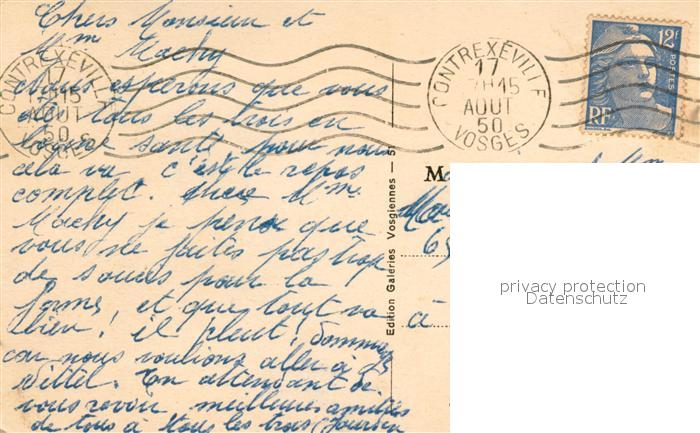 Chers Monsieur et
Mme Machy
Nous espérons que vous
êtes tous les trois en
bonne santé, pour nous
cela va c'est le repos
complet. Chère Mme
Machy je pense que
vous ne faites pas trop
de soucis pour la
ferme, et que tout va
bien! il pleut! Dommage
car nous voulions aller à
Vittel. En attendant de
vous revoir, meilleures amitiés
de tous à tous les trois
CONTREXÉVILLE
17
7H15
AOUT
50
VOSGES
CONTREXÉVILLE
17
7H15
AOUT
50
VOSGES
12F
POSTES
RF
Edition Galeries Vosgiennes — 51
M
69
à
privacy protection
Datenschutz